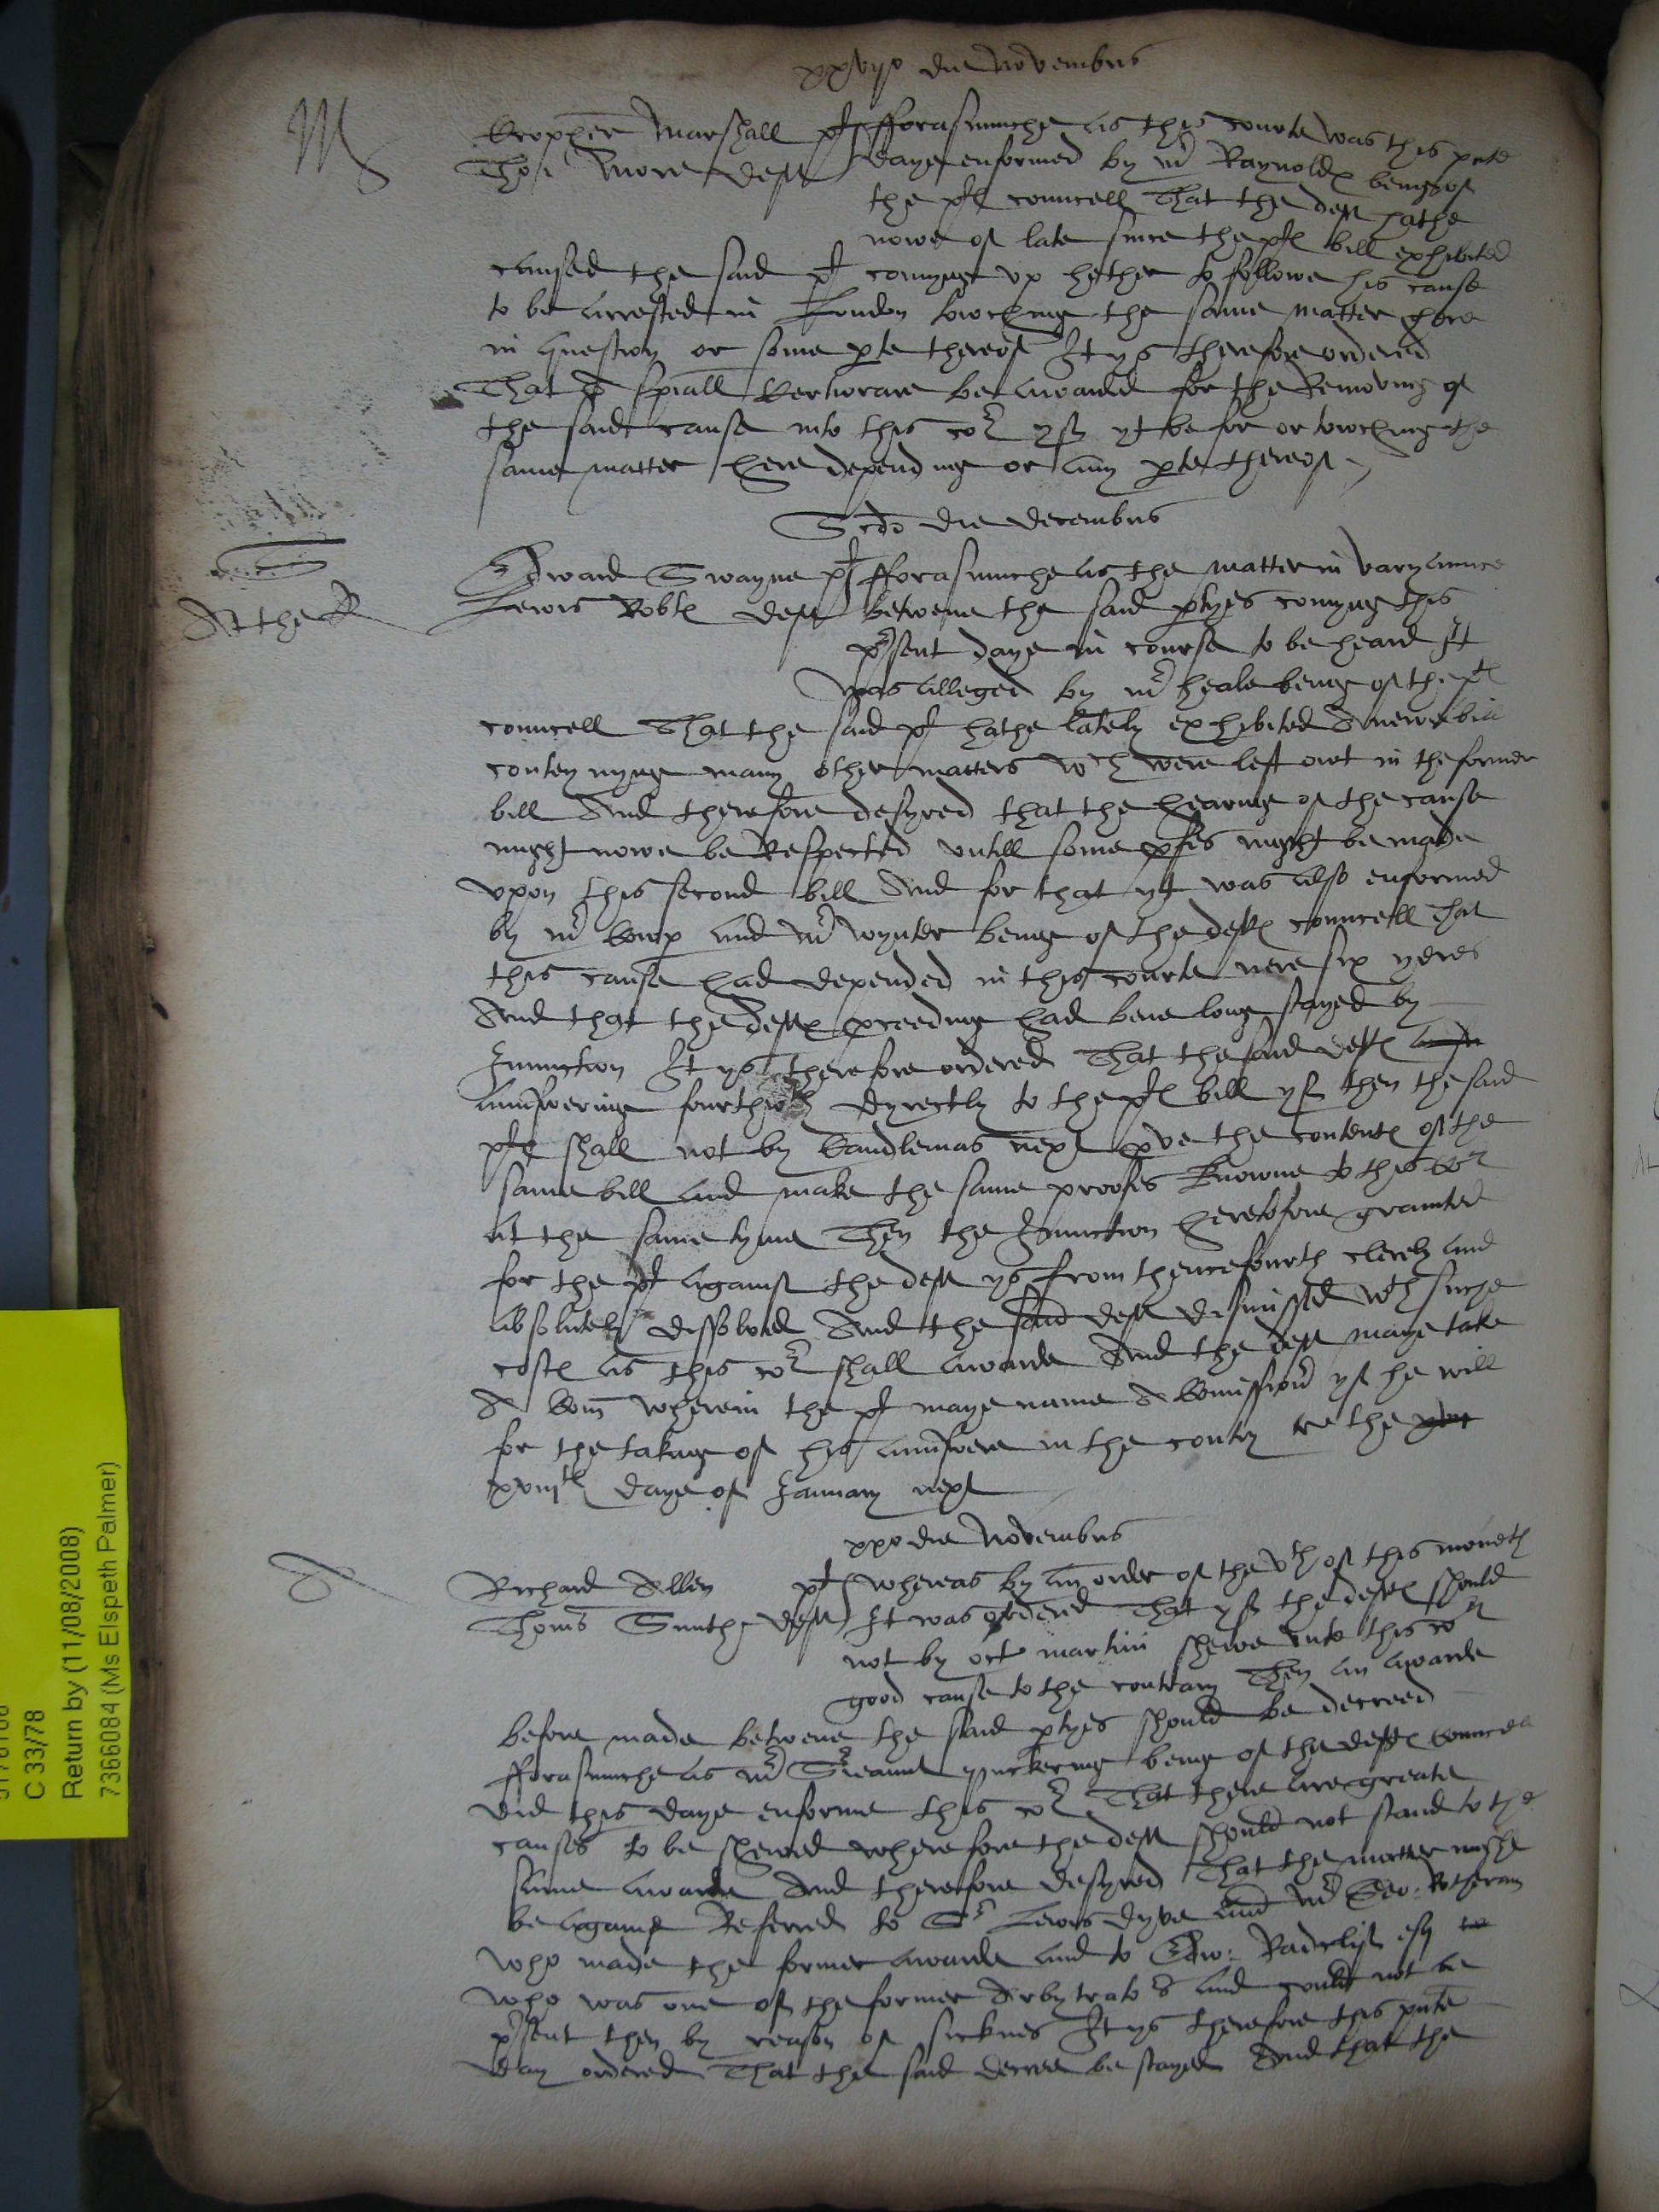 xxviio die Novembris
M
Xpopher Marshall plt fforasmuche as this courte was this pnte
Tho: More deft daye enformed by Mr Raynoldes being of
the plts councell That the deft hathe
nowe of late since the pltes bill exhibited
caused the said plt comynge vp hether to followe his cause
to be arrested in London towching the same matter here
in question or some pte thereof It ys therefore ordered
That a spiall Certiorare be awarded for the Removing of
the said cause into this cor yf yt be for or towching the
same matter here depending or any pte thereof
Scdo die Decembris
At the R
Edward Swayne plt fforasmuche as the matter in varyaunce
Lewis Robtes deft betwene the said ptyes comyng this
present daye in course to be heard It
was alleged by Mr Heale being of the pltes
councell That the said plt hathe lately exhibited A newe bill
conteynyng many other matters wch were left owt in the former
bill And therefore desyred that the hearing of the cause
might nowe be Respected vntill some pfes might be made
vpon this second bill And for that yt was also enformed
by Mr Cowp and Mr Wynter being of the deftes councell that
this cause had depended in this courte nere six yeres
And that the deftes pceeding had bene long stayed by
Iniunction It ys therefore ordered That the said deftes
aunswering fourthwth dyrectly to the pltes bill yf then the said
plt shall not by Candlemas next pve the contentes of the
same bill and make the same proofes knowne to this cor
at the same tyme Then the Iniunction heretofore graunted
for the plt against the deft ys from thencefourth clerely and
absolutely dissolved And the said deft dismissed wth suche
costes as this cor shall awarde And the deft maye take
A Com wherein the plt maye name A Comissionr yf he will
for the taking of his aunswere in the contry the
xviijth daye of January next
xxo die Novembris
Richard Allen plt Whereas by an order of the vth of this moneth
Thoms Smithe deft It was ordered That yf the deftes should
not by octa martini shewe vnto this cor
good cause to the contrary Then an awarde
before made betwene the said ptyes should be decreed
fforasmuche as Mr Sreaunt Puckering being of the deftes councell
did this daye enforme this cor That there are greate
causes to be shewed wherefore the deft should not stand to the
same awarde And therefore desyred That the matter might
be againe Referred to Sr Lewis Dyve and Mr Geo: Rotheram
who made the former awarde and to Edw: Radclif esq
who was one of the former Arbytrators and could not be
present then by reason of sicknes It ys therefore this pnte
day ordered That the said decree be stayed And that the
C 33/78
Return by (11/08/2008)
7366084 (Ms Elspeth Palmer)